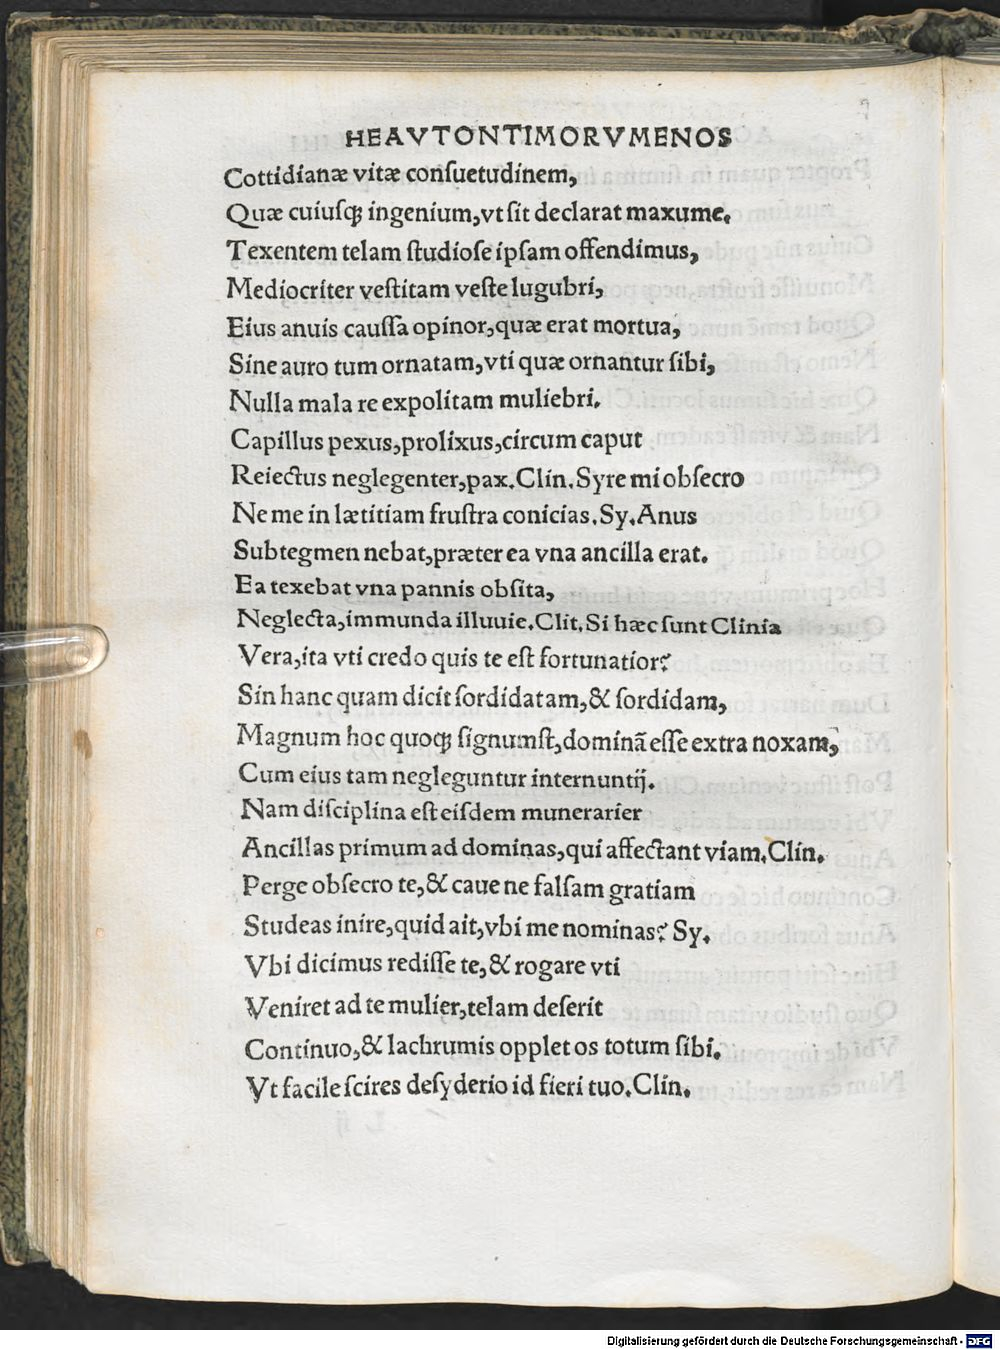 HEAVTONTIMORVMENOS
Cottidianæ vitæ conſuetudinem,
Quæ cuiuſqꝫ ingenium,vt ſit declarat maxume.
Texentem telam ſtudioſe ipſam offendimus,
Mediocriter veſtitam veſte lugubri,
Eius anuis cauſſa opinor,quæ erat mortua,
Sine auro tum ornatam,vti quæ ornantur ſibi,
Nulla mala re expolitam muliebri.
Capillus pexus,prolixus,circum caput
Reiectus neglegenter,pax.Clin.Syre mi obſecro
Ne me in lætitiam fruſtra conicias.Sy.Anus
Subtegmen nebat,præter ea vna ancilla erat.
Ea texebat vna pannis obſita,
Neglecta,immunda illuuie.Clit.Si hæc ſunt Clinia
Vera,ita vti credo quis te eſt fortunatior?
Sin hanc quam dicit ſordidatam,& ſordidam,
Magnum hoc quoqꝫ ſignumſt,dominã eſſe extra noxam,
Cum eius tam negleguntur internuntij.
Nam diſciplina eſt eiſdem munerarier
Ancillas primum ad dominas,qui affectant viam.Clin.
Perge obſecro te,& caue ne falſam gratiam
Studeas inire,quid ait,vbi me nominas? Sy.
Vbi dicimus rediſſe te,& rogare vti
Veniret ad te mulier,telam deſerit
Continuo,& lachrumis opplet os totum ſibi.
Vt facile ſcires deſyderio id fieri tuo.Clin.
Digitalisierung gefördert durch die Deutsche Forschungsgemeinschaft - DFG